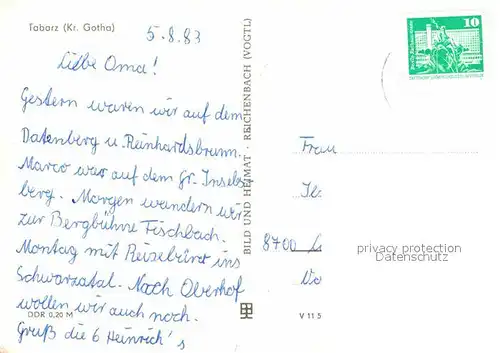 Tabarz (Kr. Gotha)
5.8.83
Liebe Oma!
Gestern waren wir auf dem
Datenberg u. Reinhardsbrunn.
Marco war auf dem gr. Insels
berg. Morgen wandern wir
zur Bergbühne Fischbach.
Montag mit Reisebüro ins
Schwarzatal. Nach Oberhof
wollen wir auch noch.
Gruß die 6 Heinrich's
DDR 0,20 M
BILD UND HEIMAT · REICHENBACH (VOGTL)
V 11 5
10
Frau
8700
privacy protection
Datenschutz